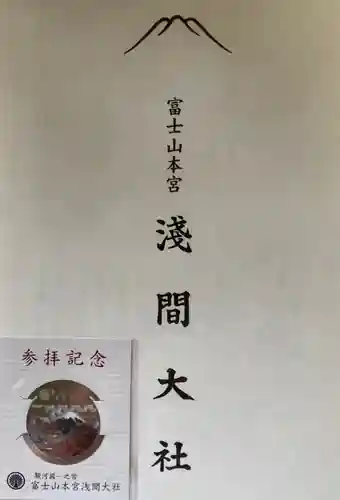 富士山本宮
淺間大社
参拝記念
駿河國一之宮
富士山本宮浅間大社